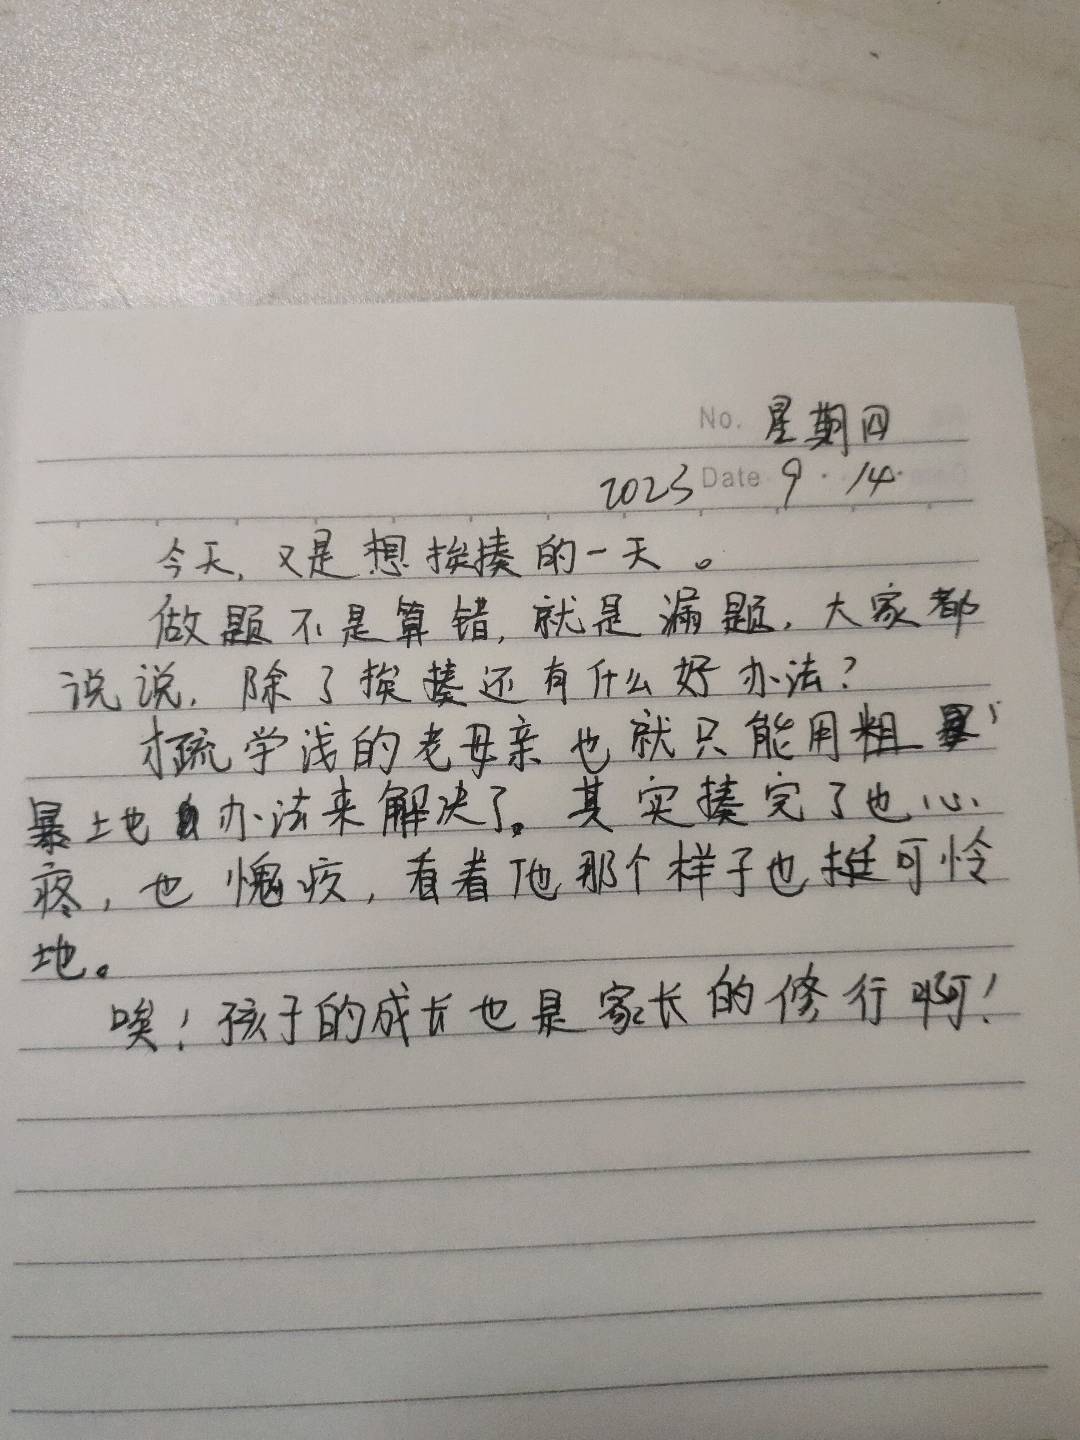 No. 星期四
2023 Date 9.14.
今天,又是想挨揍的一天。
做题不是算错,就是漏题,大家都
说说,除了挨揍还有什么好办法?
才疏学浅的老母亲也就只能用粗
暴地办法来解决了。其实揍完了也心
疼,也愧疚,看着他那个样子也挺可怜
地。
唉!孩子的成长也是家长的修行啊!